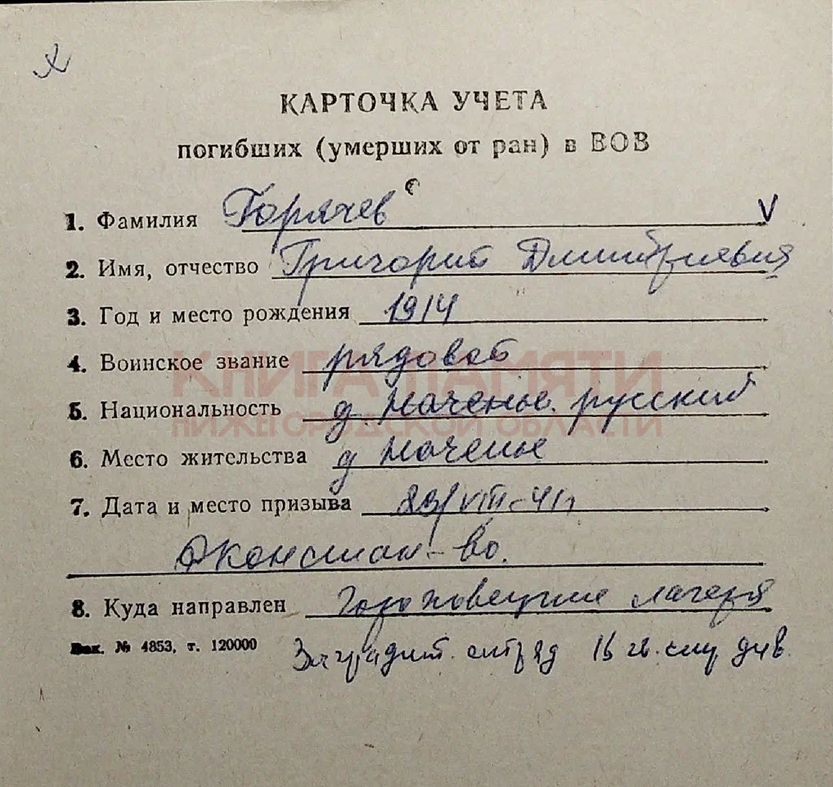 КАРТОЧКА УЧЕТА
погибших (умерших от ран) в ВОВ
1. Фамилия Горячев
2. Имя, отчество Григорий Дмитриевич
3. Год и место рождения 1914
4. Воинское звание рядовой
КНИГА ПАМЯТИ
5. Национальность д. русский
НИЖЕГОРОДСКОЙ ОБЛАСТИ
6. Место жительства д
7. Дата и место призыва VIII-41г
Дконстан-во.
8. Куда направлен Гороховецкие лагеря
Зак. № 4853, т. 120000
Заградит. отряд 16 гв. див.